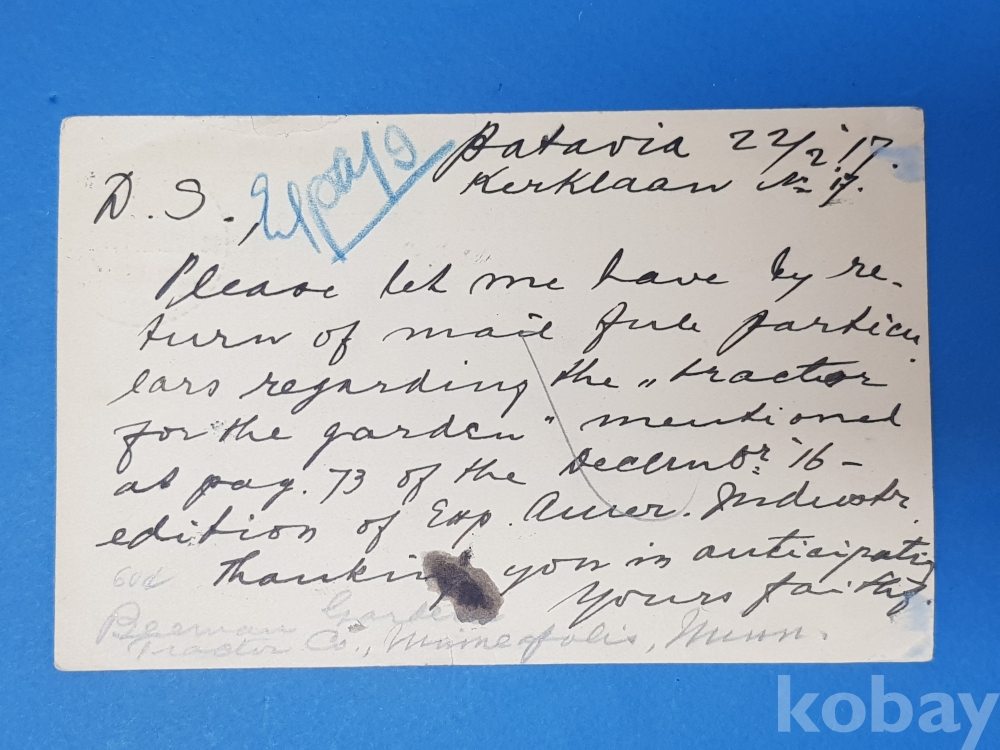 Batavia 22/2 '17.
Kerklaan No 17.
D. S.,
Please let me have by re-
turn of mail full particu-
lars regarding the „tractor
for the garden" mentioned
at pag. 73 of the Decembr. '16 -
edition of Exp. Amer. Industr.
Thanking you in anticipatig
Yours faithf.
60d
Beeman Garden
Tractor Co., Minneapolis, Minn.
kobay